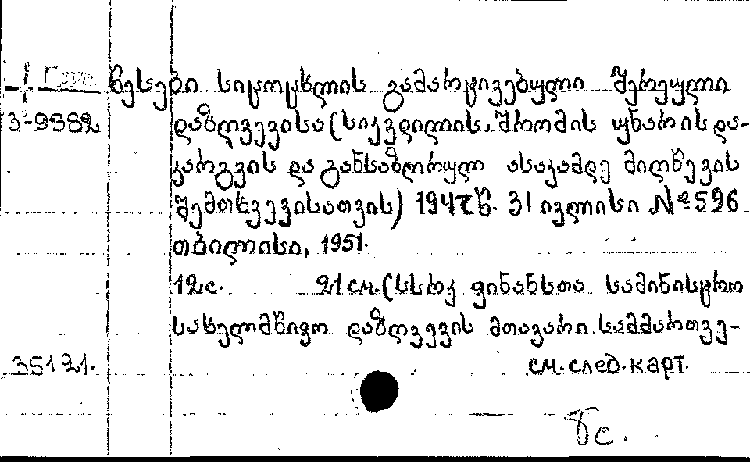 წესები სიცოცხლის გამარტივებული შერეული
3-9382 დაზღვევისა (სიკვდილის, შრომის უნარის და-
კარგვის და განსაზღვრულ ასაკამდე მიღწევის
შემთხვევისათვის) 1947წ. 31 ივლისი №596
თბილისი, 1951.
12с. 21см. (სსრკ ფინანსთა სამინისტრო
სახელმწიფო დაზღვევის მთავარი სამმართვე-
35121. см. след. карт.